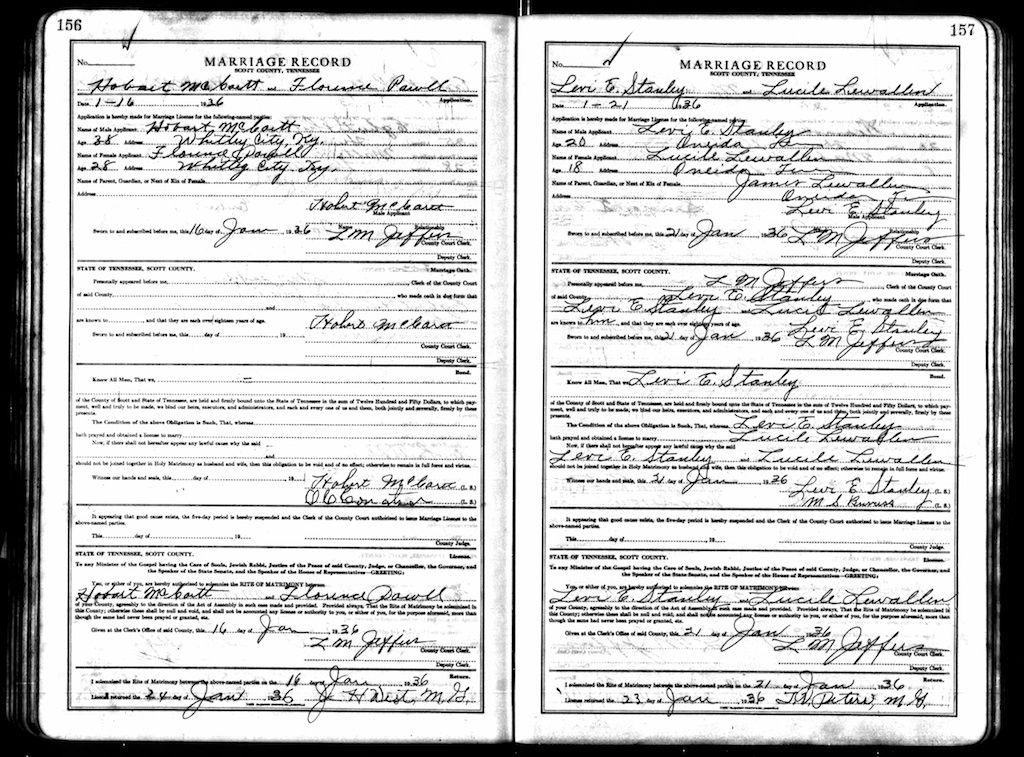 156
No.
MARRIAGE RECORD
SCOTT COUNTY, TENNESSEE
Hobart McCartt and Florence Powell
Application.
Date 1-16 1936
Application is hereby made for Marriage License for the following-named parties:
Name of Male Applicant Hobart McCartt
Age 38 Address Whitley City, Ky.
Name of Female Applicant Florence Powell
Age 28 Address Whitley City Ky.
Name of Parent, Guardian, or Next of Kin of Female
Address
Hobert McCartt
Male Applicant
Name Relationship
Sworn to and subscribed before me, this 16 day of Jan 1936 L M Jeffers
County Court Clerk.
Deputy Clerk.
STATE OF TENNESSEE, SCOTT COUNTY. Marriage Oath.
Personally appeared before me, , Clerk of the County Court
of said County, , who made oath in due form that
and
are known to , and that they are each over eighteen years of age.
Hobert McCartt
Sworn to and subscribed before me, this day of 19
County Court Clerk.
Deputy Clerk.
Bond.
Know All Men, That we,
of the County of Scott and State of Tennessee, are held and firmly bound unto the State of Tennessee in the sum of Twelve Hundred and Fifty Dollars, to which payment, well and truly to be made, we bind our heirs, executors, and administrators, and each and every one of us and them, both jointly and severally, firmly by these presents.
The Condition of the above Obligation is Such, That, whereas
hath prayed and obtained a license to marry
Now, if there shall not hereafter appear any lawful cause why the said
and
should not be joined together in Holy Matrimony as husband and wife, then this obligation to be void and of no effect; otherwise to remain in full force and virtue.
Witness our hands and seals, this day of , 19 Hobert McCartt (L. S.)
(L. S.)
It appearing that good cause exists, the five-day period is hereby suspended and the Clerk of the County Court authorized to issue Marriage License to the above-named parties.
This day of , 19
County Judge.
STATE OF TENNESSEE, SCOTT COUNTY. License.
To any Minister of the Gospel having the Care of Souls, Jewish Rabbi, Justice of the Peace of said County, Judge, or Chancellor, the Governor, and the Speaker of the State Senate, and the Speaker of the House of Representatives—GREETING:
You, or either of you, are hereby authorized to solemnize the RITE OF MATRIMONY between
Hobart McCartt and Florence Powell
of your County, agreeably to the direction of the Act of Assembly in such case made and provided. Provided always, That the Rite of Matrimony be solemnized in this County; otherwise these shall be null and void, and shall not be accounted any license or authority to you, or either of you, for the purpose aforesaid, more than though the same had never been prayed or granted, etc.
Given at the Clerk's Office of said County, this 16 day of Jan 1936
L M Jeffers
County Court Clerk.
Deputy Clerk.
Return.
I solemnized the Rite of Matrimony between the above-named parties on the 16 day of Jan 1936
License returned the 24 day of Jan 1936 J. H West, M. G.
157
No.
MARRIAGE RECORD
SCOTT COUNTY, TENNESSEE
Levi E. Stanley and Lucile Lewallen
Application.
Date 1-21 1936
Application is hereby made for Marriage License for the following-named parties:
Name of Male Applicant Levi E. Stanley
Age 20 Address Oneida
Name of Female Applicant Lucile Lewallen
Age 18 Address Oneida
Name of Parent, Guardian, or Next of Kin of Female James Lewallen
Address Oneida
Levi E. Stanley
Male Applicant
Relationship
Sworn to and subscribed before me, this 21 day of Jan 1936 L M Jeffers
County Court Clerk.
Deputy Clerk.
STATE OF TENNESSEE, SCOTT COUNTY. Marriage Oath.
Personally appeared before me, L M Jeffers, Clerk of the County Court
of said County, Levi E. Stanley, who made oath in due form that
Levi E Stanley and Lucile Lewallen
are known to him, and that they are each over eighteen years of age.
Levi E. Stanley
Sworn to and subscribed before me, this 21 day of Jan 1936 L M Jeffers
County Court Clerk.
Deputy Clerk.
Bond.
Know All Men, That we, Levi E. Stanley
of the County of Scott and State of Tennessee, are held and firmly bound unto the State of Tennessee in the sum of Twelve Hundred and Fifty Dollars, to which payment, well and truly to be made, we bind our heirs, executors, and administrators, and each and every one of us and them, both jointly and severally, firmly by these presents.
The Condition of the above Obligation is Such, That, whereas Levi E. Stanley
hath prayed and obtained a license to marry Lucile Lewallen
Now, if there shall not hereafter appear any lawful cause why the said
Levi E. Stanley and Lucile Lewallen
should not be joined together in Holy Matrimony as husband and wife, then this obligation to be void and of no effect; otherwise to remain in full force and virtue.
Witness our hands and seals, this 21 day of Jan 1936
Levi E. Stanley (L. S.)
M. S. (L. S.)
It appearing that good cause exists, the five-day period is hereby suspended and the Clerk of the County Court authorized to issue Marriage License to the above-named parties.
This day of , 19
County Judge.
STATE OF TENNESSEE, SCOTT COUNTY. License.
To any Minister of the Gospel having the Care of Souls, Jewish Rabbi, Justice of the Peace of said County, Judge, or Chancellor, the Governor, and the Speaker of the State Senate, and the Speaker of the House of Representatives—GREETING:
You, or either of you, are hereby authorized to solemnize the RITE OF MATRIMONY between
Levi E. Stanley and Lucile Lewallen
of your County, agreeably to the direction of the Act of Assembly in such case made and provided. Provided always, That the Rite of Matrimony be solemnized in this County; otherwise these shall be null and void, and shall not be accounted any license or authority to you, or either of you, for the purpose aforesaid, more than though the same had never been prayed or granted, etc.
Given at the Clerk's Office of said County, this 21 day of Jan 1936
L M Jeffers
County Court Clerk.
Deputy Clerk.
Return.
I solemnized the Rite of Matrimony between the above-named parties on the 21 day of Jan 1936
License returned the 23 day of Jan 1936 Peters, M. G.